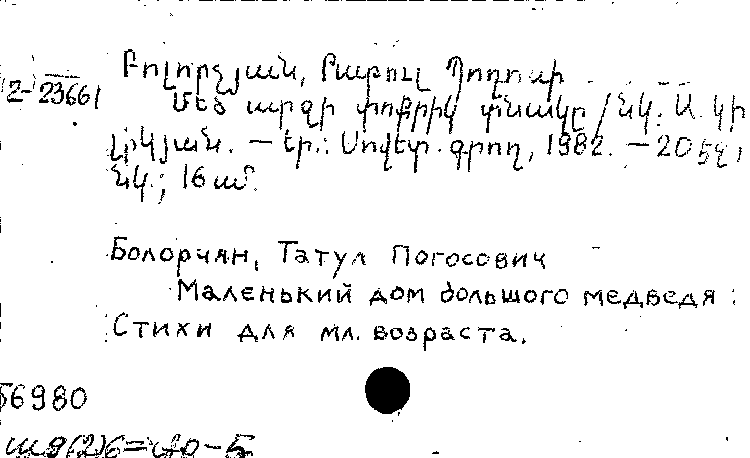 Բոլորչյան, Թաթուլ Պողոսի
2-23661
Մեծ արջի փոքրիկ տնակը / Նկ. Ա. Կի
լիկյան. — Եր.: Սովետ. գրող, 1982. — 20 էջ,
նկ.; 16 սմ.
Болорчян, Татул Погосович
Маленький дом большого медведя :
Стихи для мл. возраста.
56980